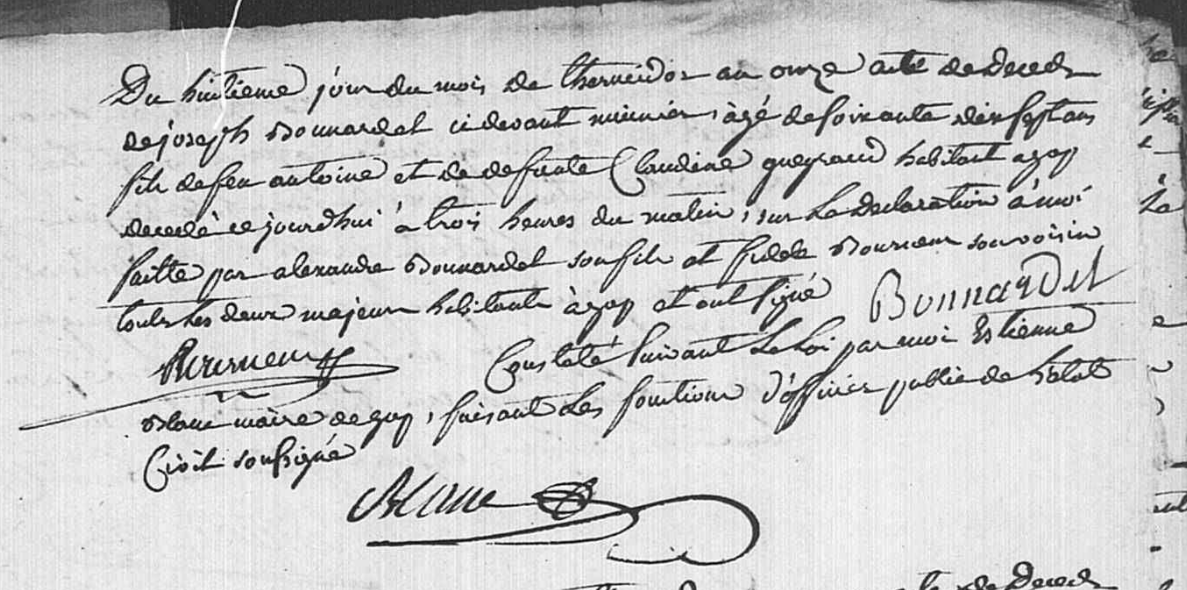 Du huitieme jour du mois de thermidor an onze acte de Deceds
de joseph Bonnardel ci devant meunier, agé de soixante dix sept ans
fils de feu antoine et de defunte Claudine gueyraud habitant a gap
decedé ce jourdhui à trois heures du matin, sur la declaration à moi
faitte par alexandre Bonnardel son fils et fidele Bourneur son voisin
touts les deux majeurs habitants à gap et ont signé Bonnardel
Constaté suivant la Loi par moi Estienne
Blanc maire de gap, faisant Les fonctions d'officier public de L'état
Civil soussigné
Blanc
de Deceds